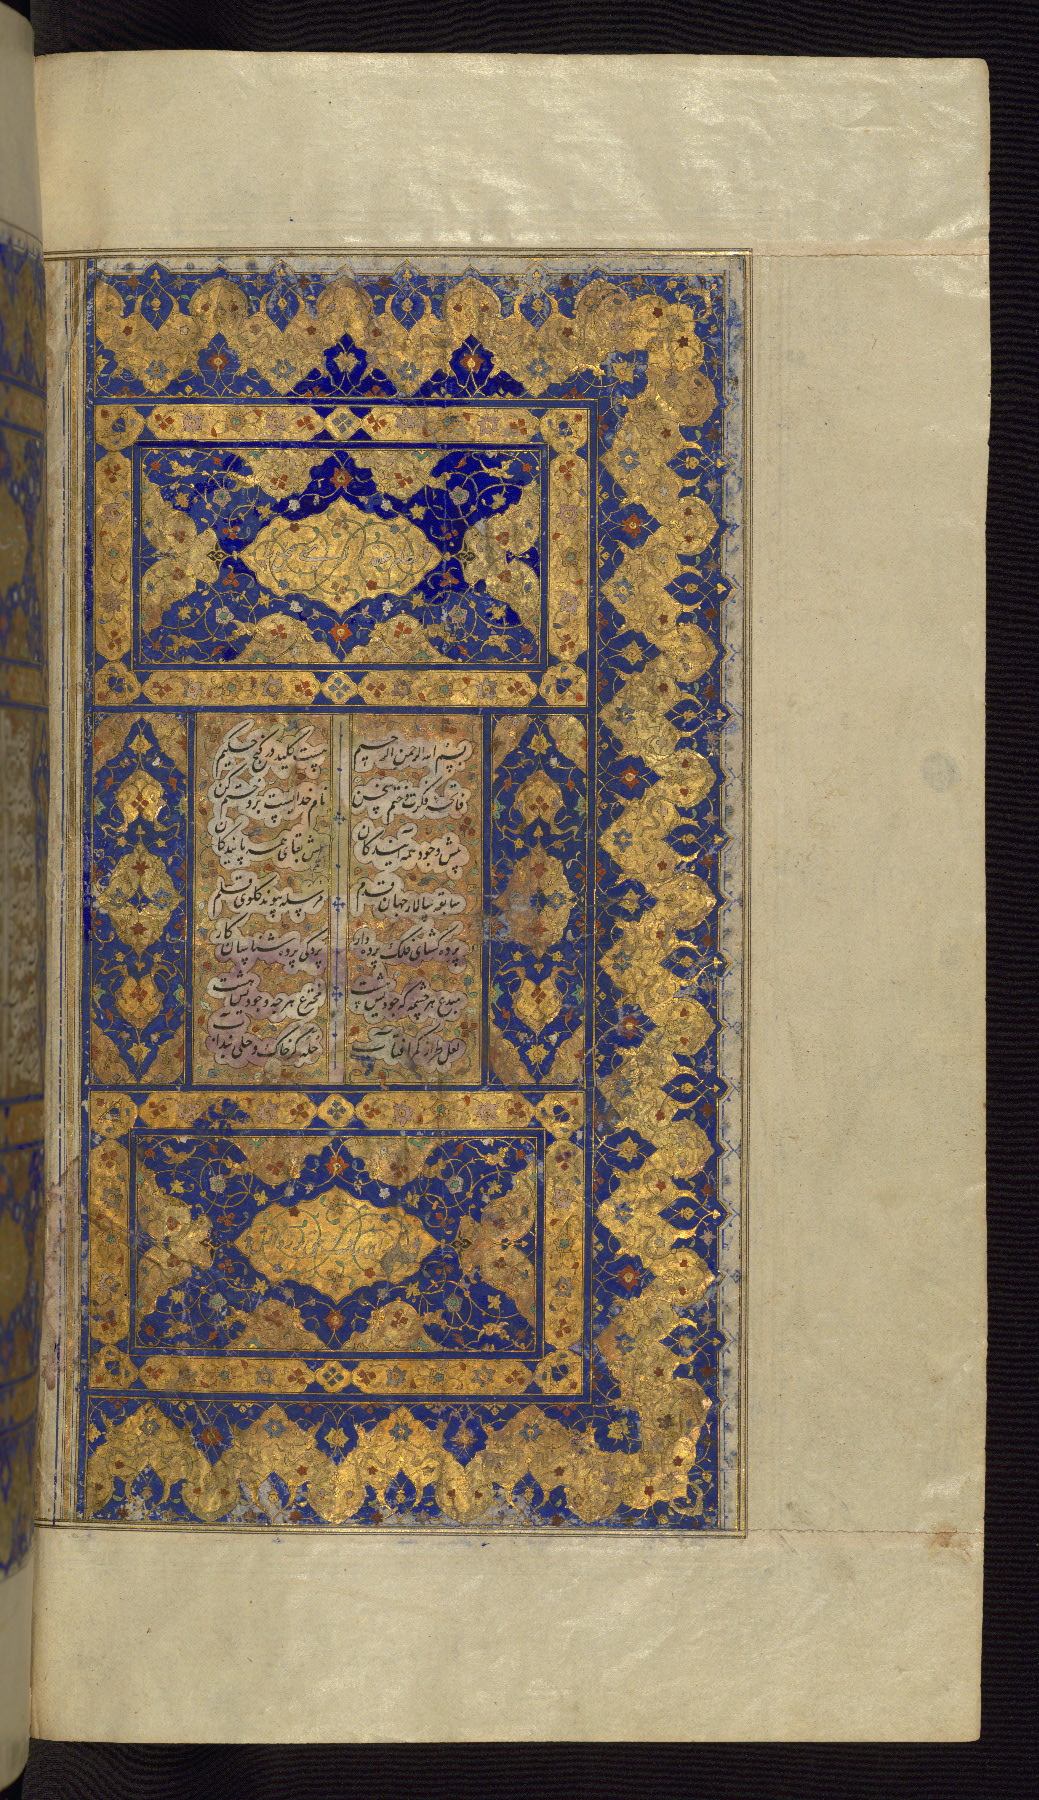 بسم الله الرحمن الرحیم هست کلید در گنج حکیم
فاتحه فکرت و ختم سخن نام خدایست برو ختم کن
پیش وجود همه آیندگان پیش بقای همه پایندگان
سابقه سالار جهان قدم مرسله پیوند گلوی قلم
پرده گشای فلک پرده دار پردگی پرده شناسان کار
مبدع هر چشمه که جودیش هست مخترع هر چه وجودیش هست
لعل طراز کمر آفتاب حله گر خاک و حلی بند آب